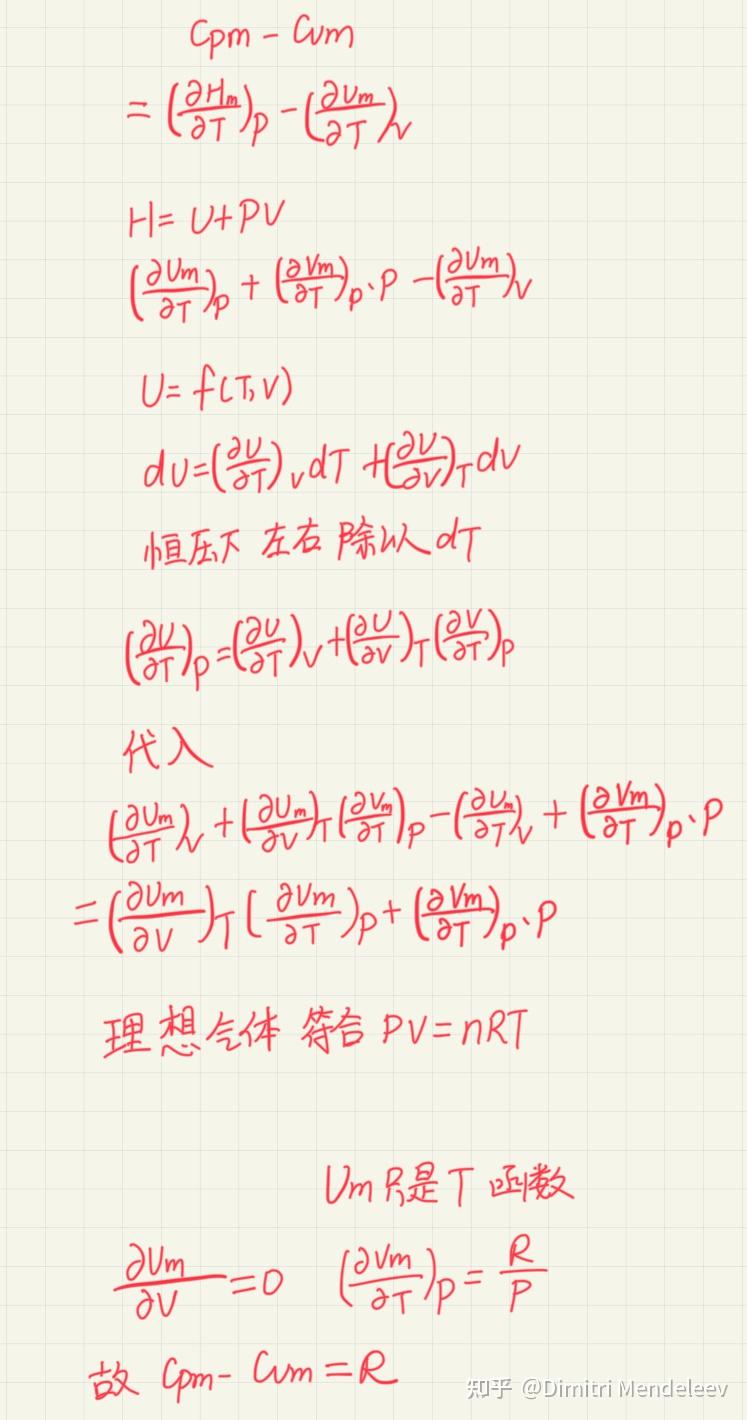 Cpm - Cvm
= (∂Hm/∂T)p - (∂Um/∂T)v
H = U + PV
(∂Um/∂T)p + (∂Vm/∂T)p · P - (∂Um/∂T)v
U = f(T, V)
dU = (∂U/∂T)v dT + (∂U/∂V)T dV
恒压下 左右 除以 dT
(∂U/∂T)p = (∂U/∂T)v + (∂U/∂V)T (∂V/∂T)p
代入
(∂Um/∂T)v + (∂Um/∂V)T (∂Vm/∂T)p - (∂Um/∂T)v + (∂Vm/∂T)p · P
= (∂Um/∂V)T (∂Vm/∂T)p + (∂Vm/∂T)p · P
理想气体 符合 PV = nRT
Um 只是 T 函数
∂Um/∂V = 0 (∂Vm/∂T)p = R/P
故 Cpm - Cvm = R
知乎 @Dimitri Mendeleev